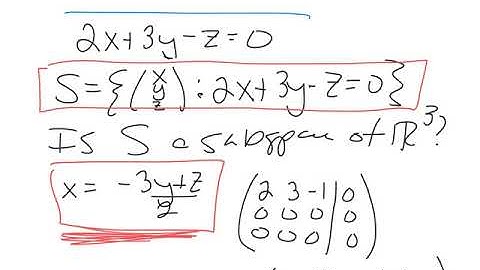 2x+3y-z=0
S={(x y z) : 2x+3y-z=0}
Is S a subspace of ℝ³?
x = (-3y+z)/2
(2 3 -1 | 0
0 0 0 | 0
0 0 0 | 0)